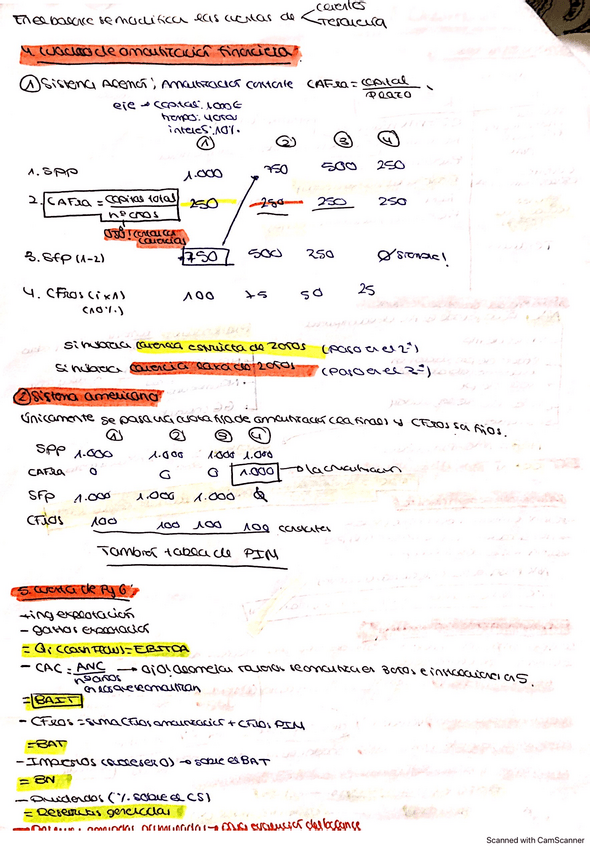 En el balance se modifican las cuentas de < clientes
tesorería
4. Cuadros de amortización financiera
① Sistema Alemán: Amortización constante CAFra = capital / plazo
eje → capital: 1000€
tiempo: 4 años
interés: 10%
① ② ③ ④
1. SPP 1.000 750 500 250
2. CAFra = capital total / nº años 250 250 250 250
3. SFP (1-2) 750 500 250 Ø siempre!
4. CFros (i x 1) 100 75 50 25
(10%)
Si hubiera carencia estricta de 2 años (paso en el 2º)
Si hubiera carencia laxa de 2 años (paso en el 3º)
② Sistema americano
Únicamente se paga una cuota fija de amortización (al final) y CFros son fijos.
① ② ③ ④
SPP 1.000 1.000 1.000 1.000
CAFra 0 0 0 1.000
SFP 1.000 1.000 1.000 Ø
CFros 100 100 100 100 constantes
También tabla de PIM
5. Cuenta de PyG
+ ing explotación
- gastos explotación
= Qi (cash flow) = EBITDA
- CAC = ANC / nº años en los que se amortizan
= BAIT
- CFros = suma CFros amortización + CFros PIM
= BAT
- Impuestos → sobre el BAT
= BN
- Dividendos (% sobre el CS)
= Reservas generadas
Scanned with CamScanner